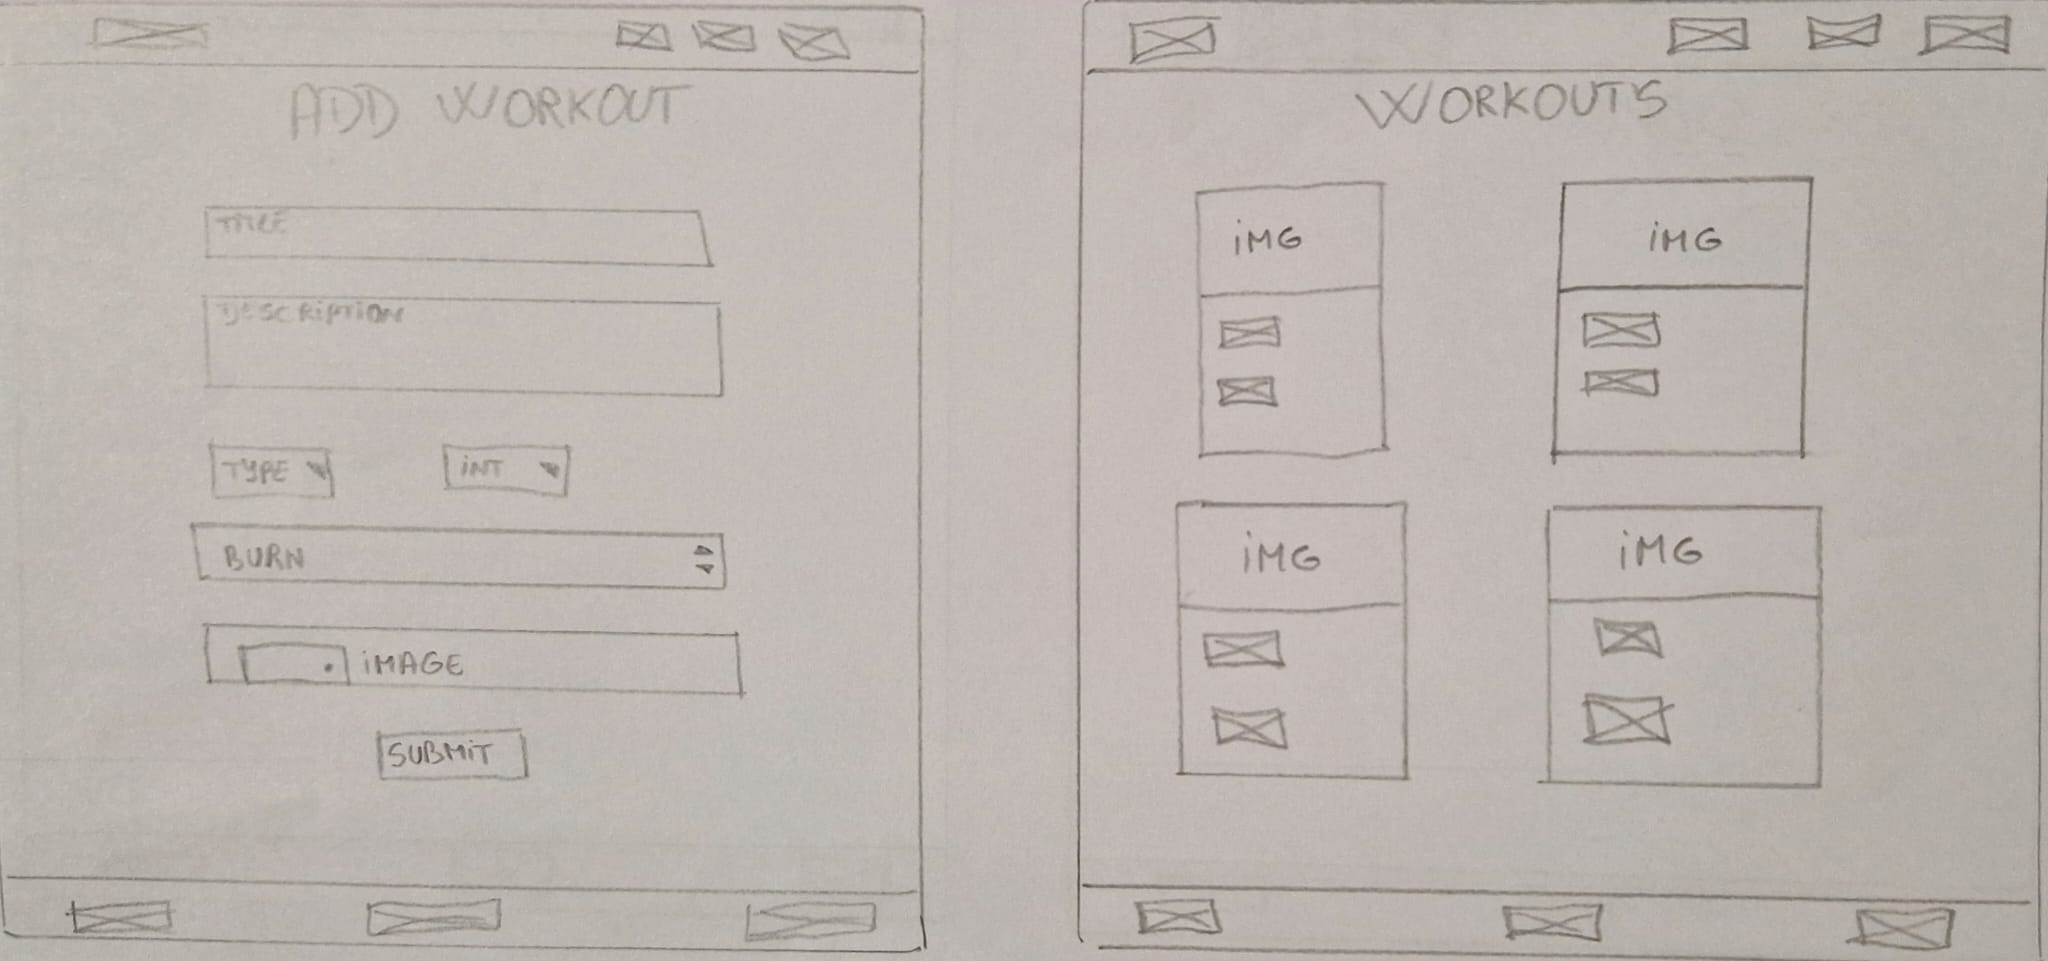 ADD WORKOUT
TITLE
DESCRIPTION
TYPE
INT
BURN
IMAGE
SUBMIT
WORKOUTS
iMG
iMG
iMG
iMG